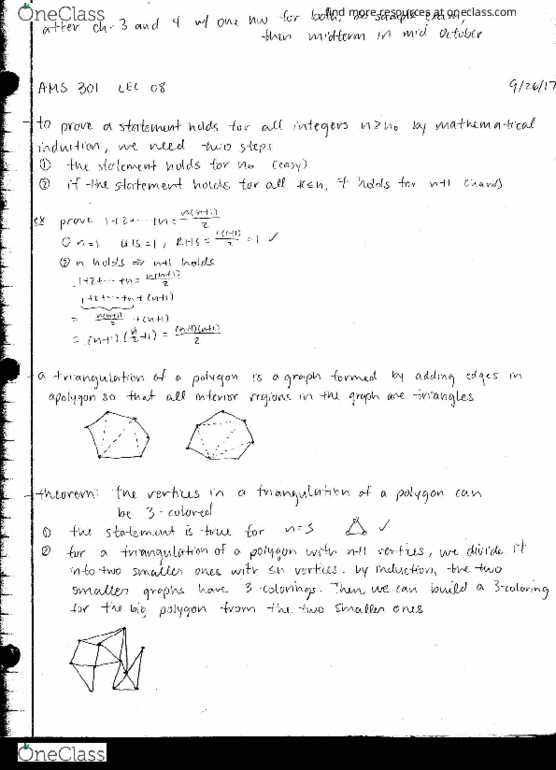 OneClass
find more resources at oneclass.com
after ch. 3 and 4 w/ one hw for both, sample exam,
then midterm in mid October
AMS 301 LEC 08
9/26/17
to prove a statement holds for all integers n≥n₀ by mathematical
induction, we need two steps
① the statement holds for n₀ (easy)
② if the statement holds for all k≤n, it holds for n+1 (hard)
ex prove 1+2+···+n = n(n+1)/2
① n=1 LHS=1, RHS = 1(1+1)/2 = 1 ✓
② n holds ⇒ n+1 holds
1+2+···+n = n(n+1)/2
1+2+···+n+(n+1)
= n(n+1)/2 +(n+1)
= (n+1)(n/2+1) = (n+1)(n+2)/2
a triangulation of a polygon is a graph formed by adding edges in
a polygon so that all interior regions in the graph are triangles
theorem: the vertices in a triangulation of a polygon can
be 3-colored
① the statement is true for n=3 ✓
② for a triangulation of a polygon with n+1 vertices, we divide it
into two smaller ones with ≤n vertices. by induction, the two
smaller graphs have 3-colorings. Then, we can build a 3-coloring
for the big polygon from the two smaller ones
OneClass